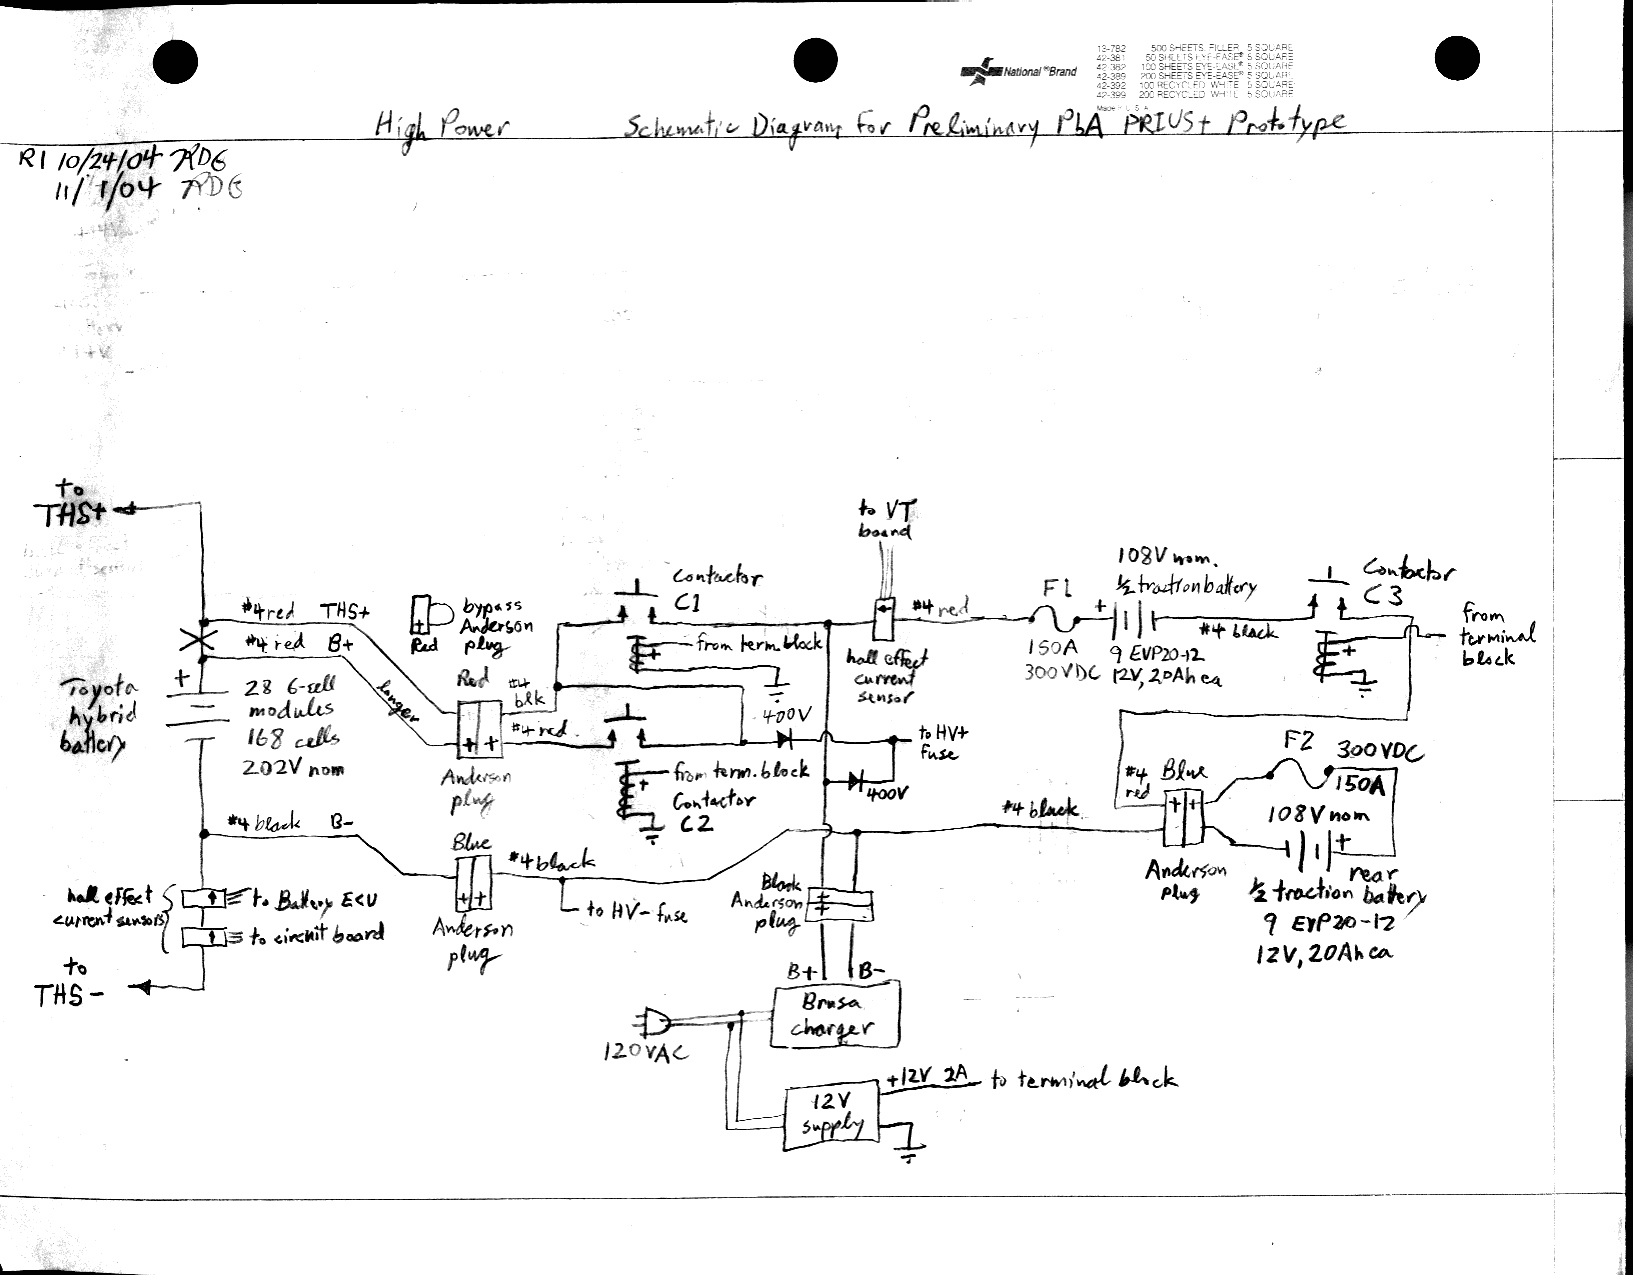 National® Brand
13-782 500 SHEETS, FILLER 5 SQUARE
42-381 50 SHEETS EYE-EASE® 5 SQUARE
42-382 100 SHEETS EYE-EASE® 5 SQUARE
42-389 200 SHEETS EYE-EASE® 5 SQUARE
42-392 100 RECYCLED WHITE 5 SQUARE
42-399 200 RECYCLED WHITE 5 SQUARE
Made in U.S.A.
High Power Schematic Diagram for Preliminary PbA PRIUS+ Prototype
R1 10/24/04 RDG
11/1/04 RDG
to
THS+
#4 red THS+
#4 red B+
longer
+
Toyota
hybrid
battery
28 6-cell
modules
168 cells
202V nom
#4 black B-
hall effect
current sensors
to Battery ECU
to circuit board
to
THS-
+
Red
bypass
Anderson
plug
Red
#4
blk
#4 red
+ +
Anderson
plug
Blue
#4 black
+ +
Anderson
plug
to HV- fuse
Contactor
C1
+
from term. block
400V
+
from term. block
Contactor
C2
to HV+
fuse
400V
to VT
board
hall effect
current
sensor
#4 red
F1
150A
300VDC
108V nom.
½ traction battery
+
#4 black
9 EVP20-12
12V, 20Ah ea
Contactor
C3
+
from
terminal
block
#4
red
Blue
+ +
Anderson
plug
F2
300VDC
150A
108V nom
+
rear
½ traction battery
9 EVP20-12
12V, 20Ah ea
#4 black
Black
Anderson
plug
B+ B-
Brusa
charger
120VAC
12V
supply
+12V 2A to terminal block